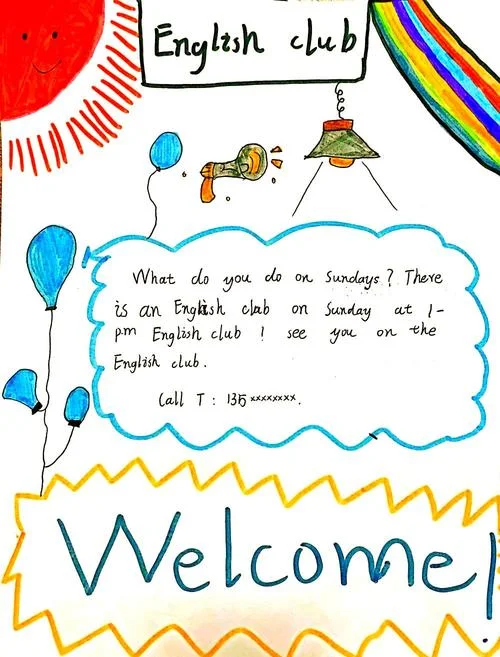 English club
What do you do on Sundays? There
is an English club on Sunday at 1-
pm English club! see you on the
English club.
Call T: 135xxxxxxxx.
Welcome!